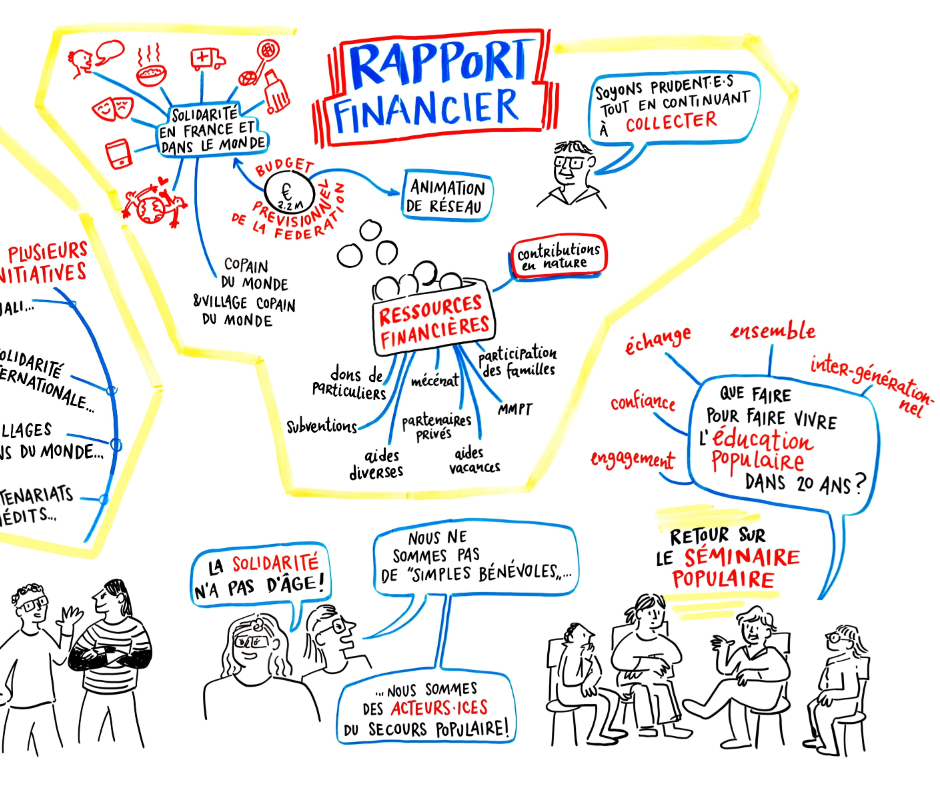 RAPPORT
FINANCIER
SOLIDARITÉ
EN FRANCE ET
DANS LE MONDE
BUDGET
PRÉVISIONNEL
DE LA FÉDÉRATION
€
2.2M
ANIMATION
DE RÉSEAU
COPAIN
DU MONDE
& VILLAGE COPAIN
DU MONDE
SOYONS PRUDENT·E·S
TOUT EN CONTINUANT
À COLLECTER
contributions
en nature
RESSOURCES
FINANCIÈRES
dons de
particuliers
mécénat
participation
des familles
Subventions
partenaires
privés
MMPT
aides
diverses
aides
vacances
PLUSIEURS
NITIATIVES
JALI...
OLIDARITÉ
ERNATIONALE...
LLAGES
NS DU MONDE...
TENARIATS
ÉDITS...
échange
ensemble
inter-génération-
nel
confiance
engagement
QUE FAIRE
POUR FAIRE VIVRE
L'éducation
populaire
DANS 20 ANS ?
RETOUR SUR
LE SÉMINAIRE
POPULAIRE
LA SOLIDARITÉ
N'A PAS D'ÂGE !
NOUS NE
SOMMES PAS
DE "SIMPLES BÉNÉVOLES"...
...NOUS SOMMES
DES ACTEURS·ICES
DU SECOURS POPULAIRE !